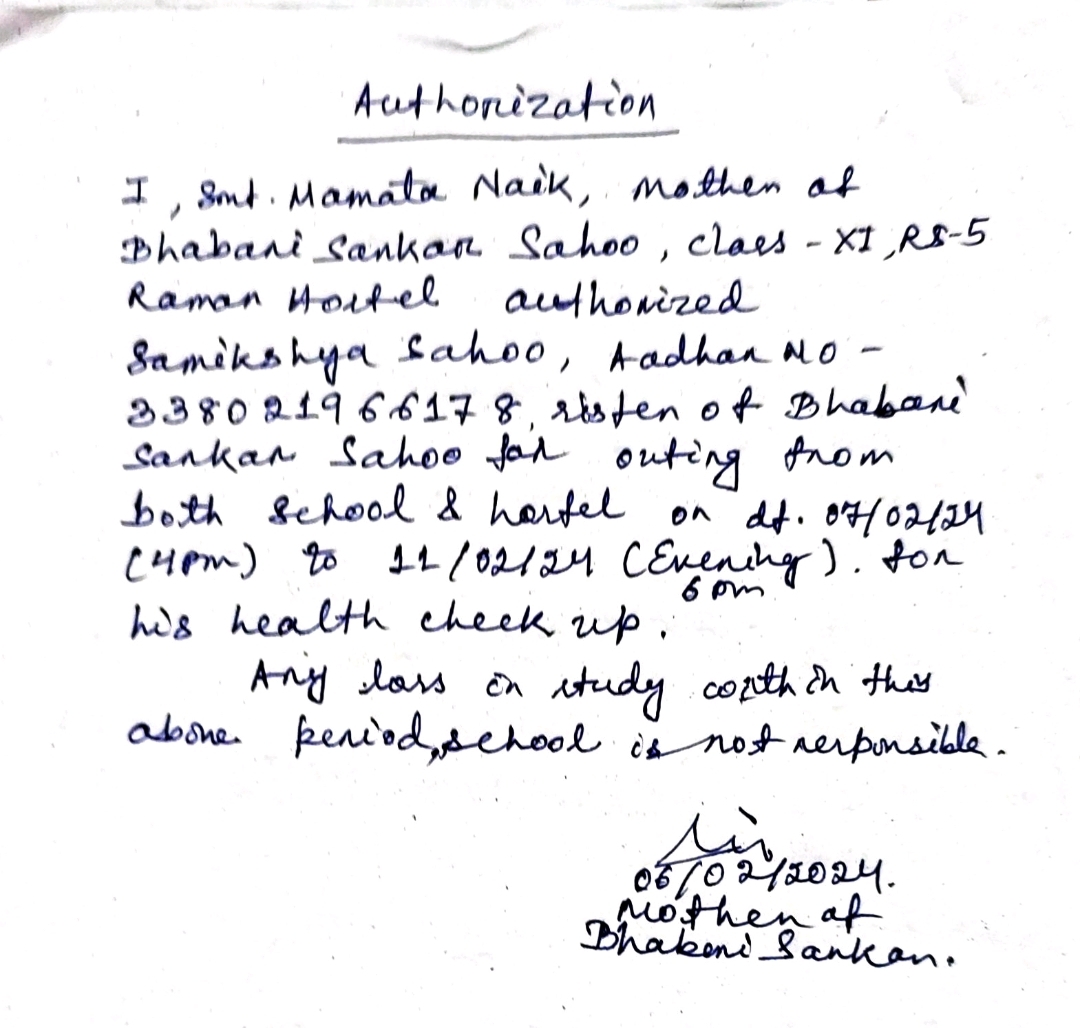 Authorization
I, Smt. Mamata Naik, Mother of
Bhabani Sankar Sahoo, class - XI, RS-5
Raman Hostel authorized
Samikshya Sahoo, Aadhar NO -
338021966178, sister of Bhabani
Sankar Sahoo for outing from
both school & hostel on dt. 07/02/24
(4pm) to 11/02/24 (Evening). for
6 pm
his health check up.
Any loss in study within this
above period, school is not responsible.
06/02/2024.
Mother of
Bhabani Sankar.